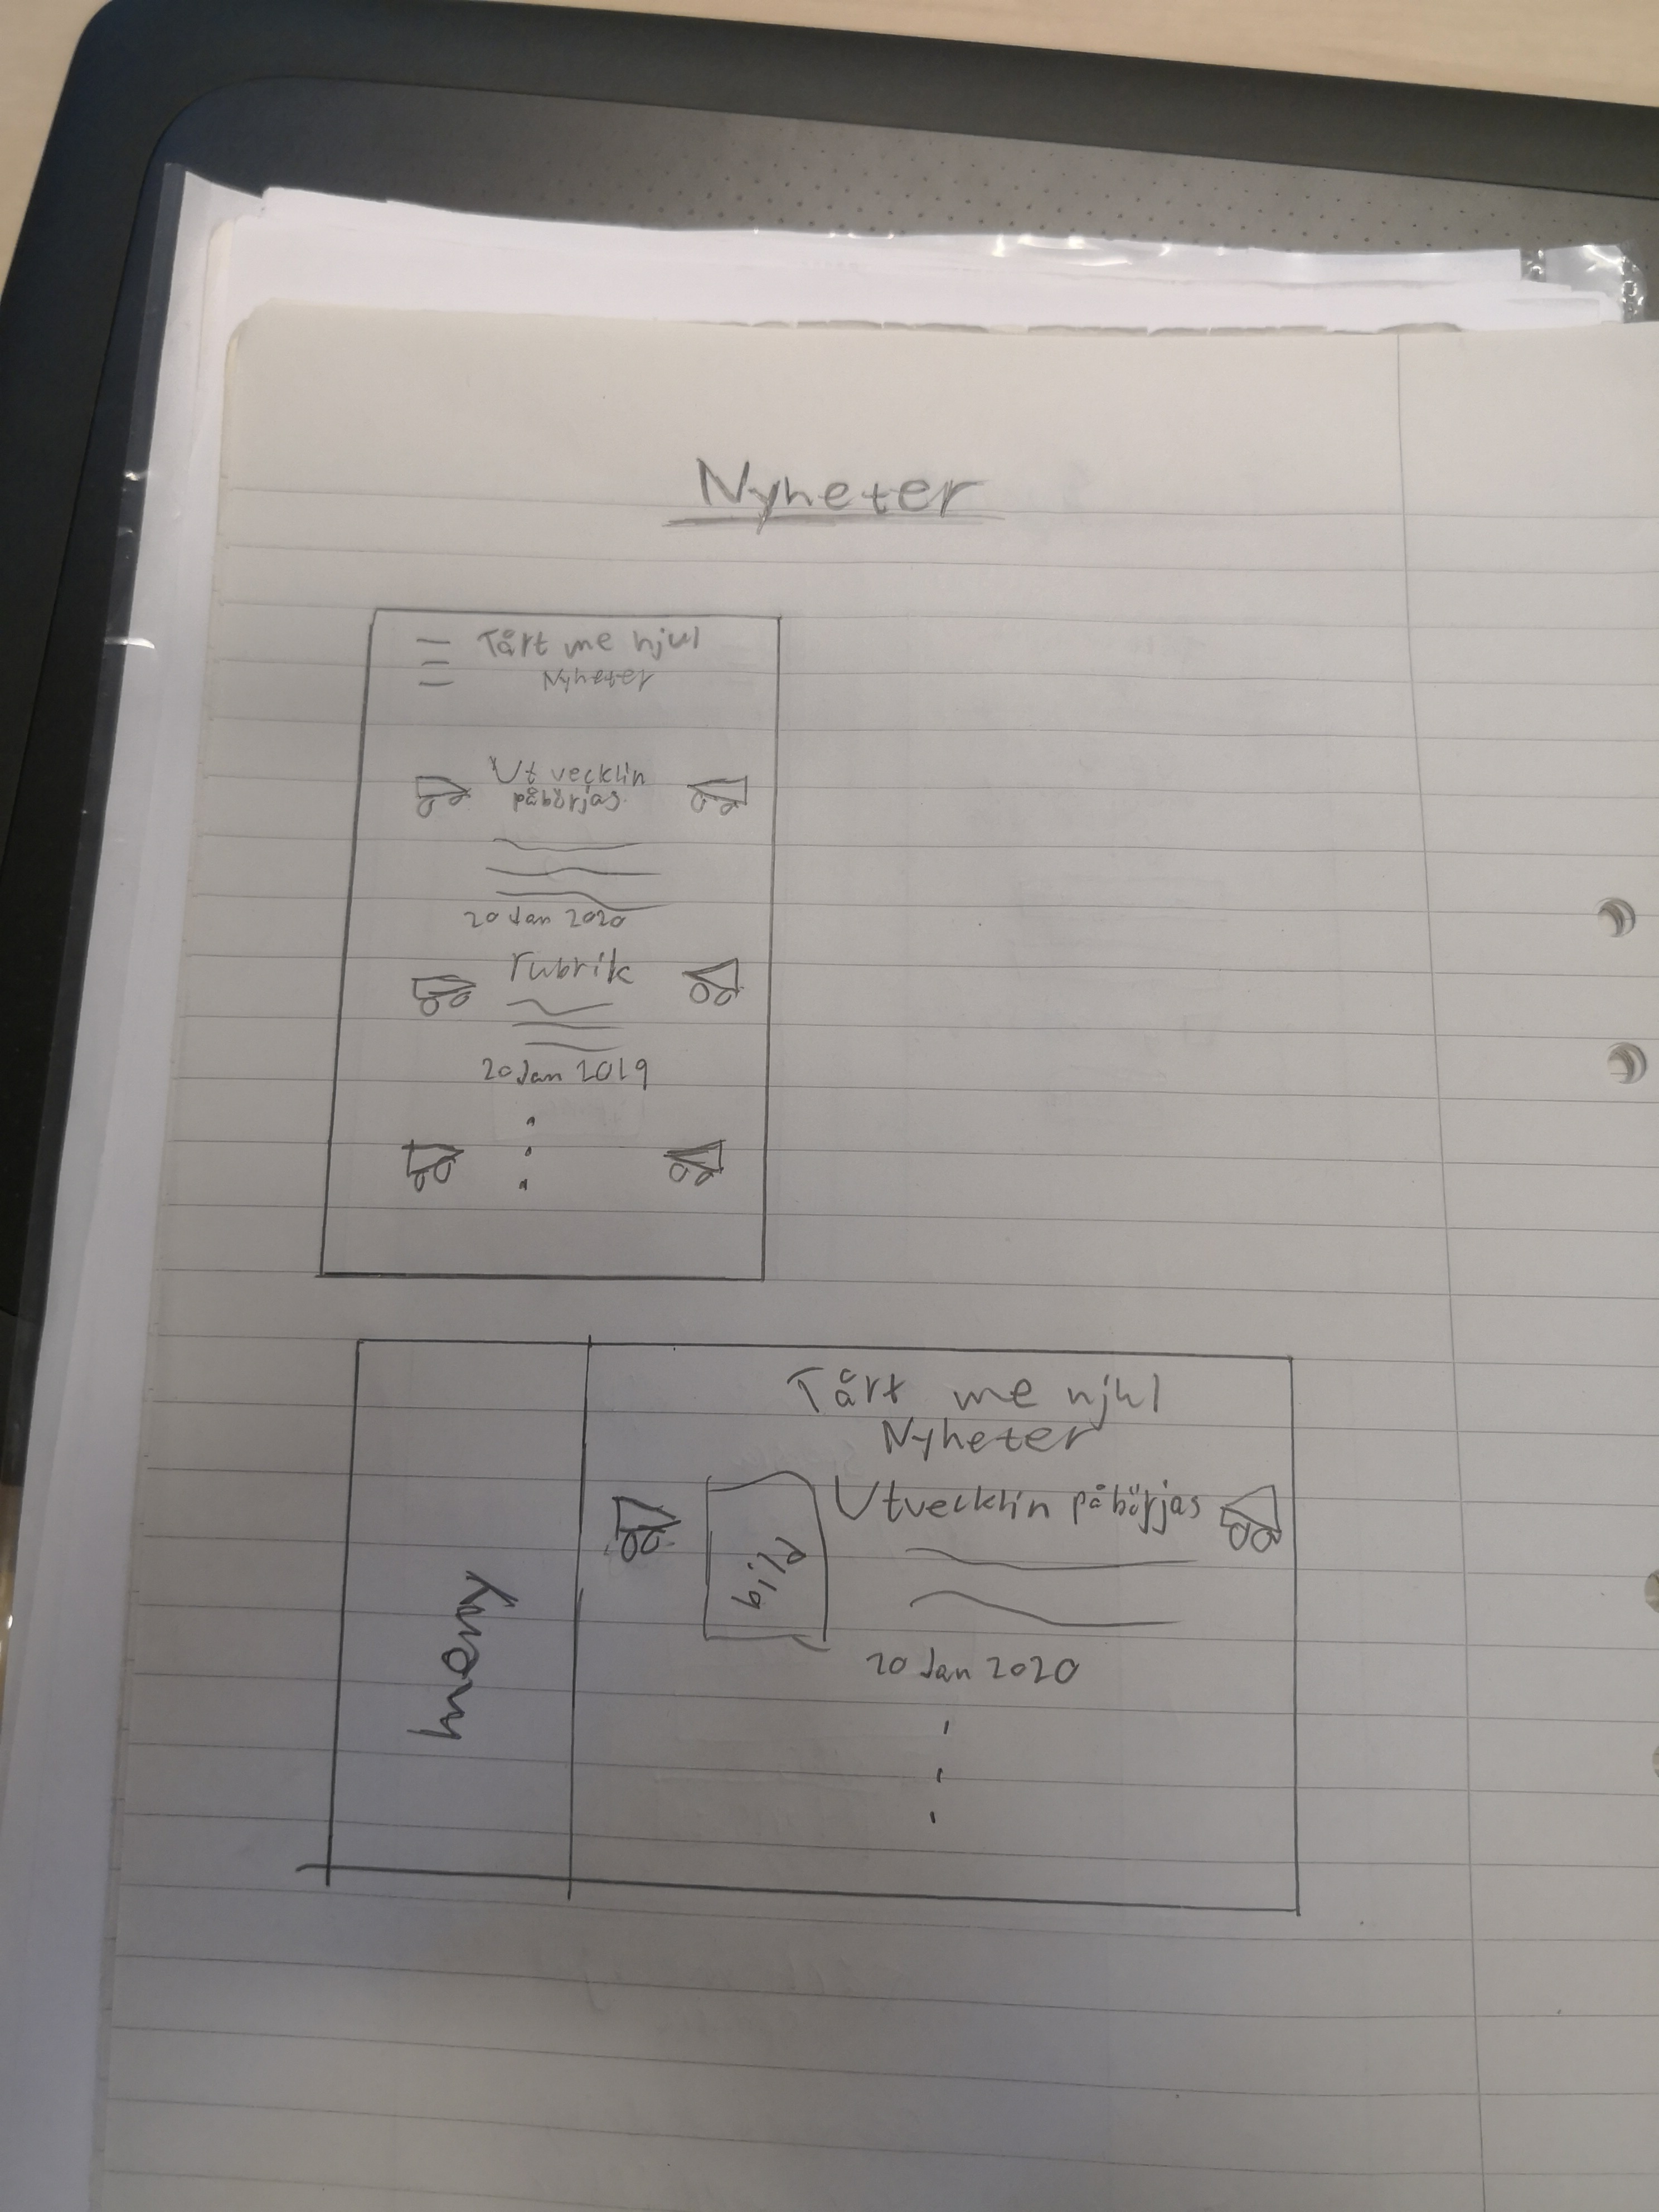 Nyheter
Tårt me hjul
Nyheter
Utvecklin
påbörjas.
20 Jan 2020
rubrik
20 Jan 2019
Tårt me hjul
Nyheter
Utvecklin påbörjas
bild
20 Jan 2020
meny